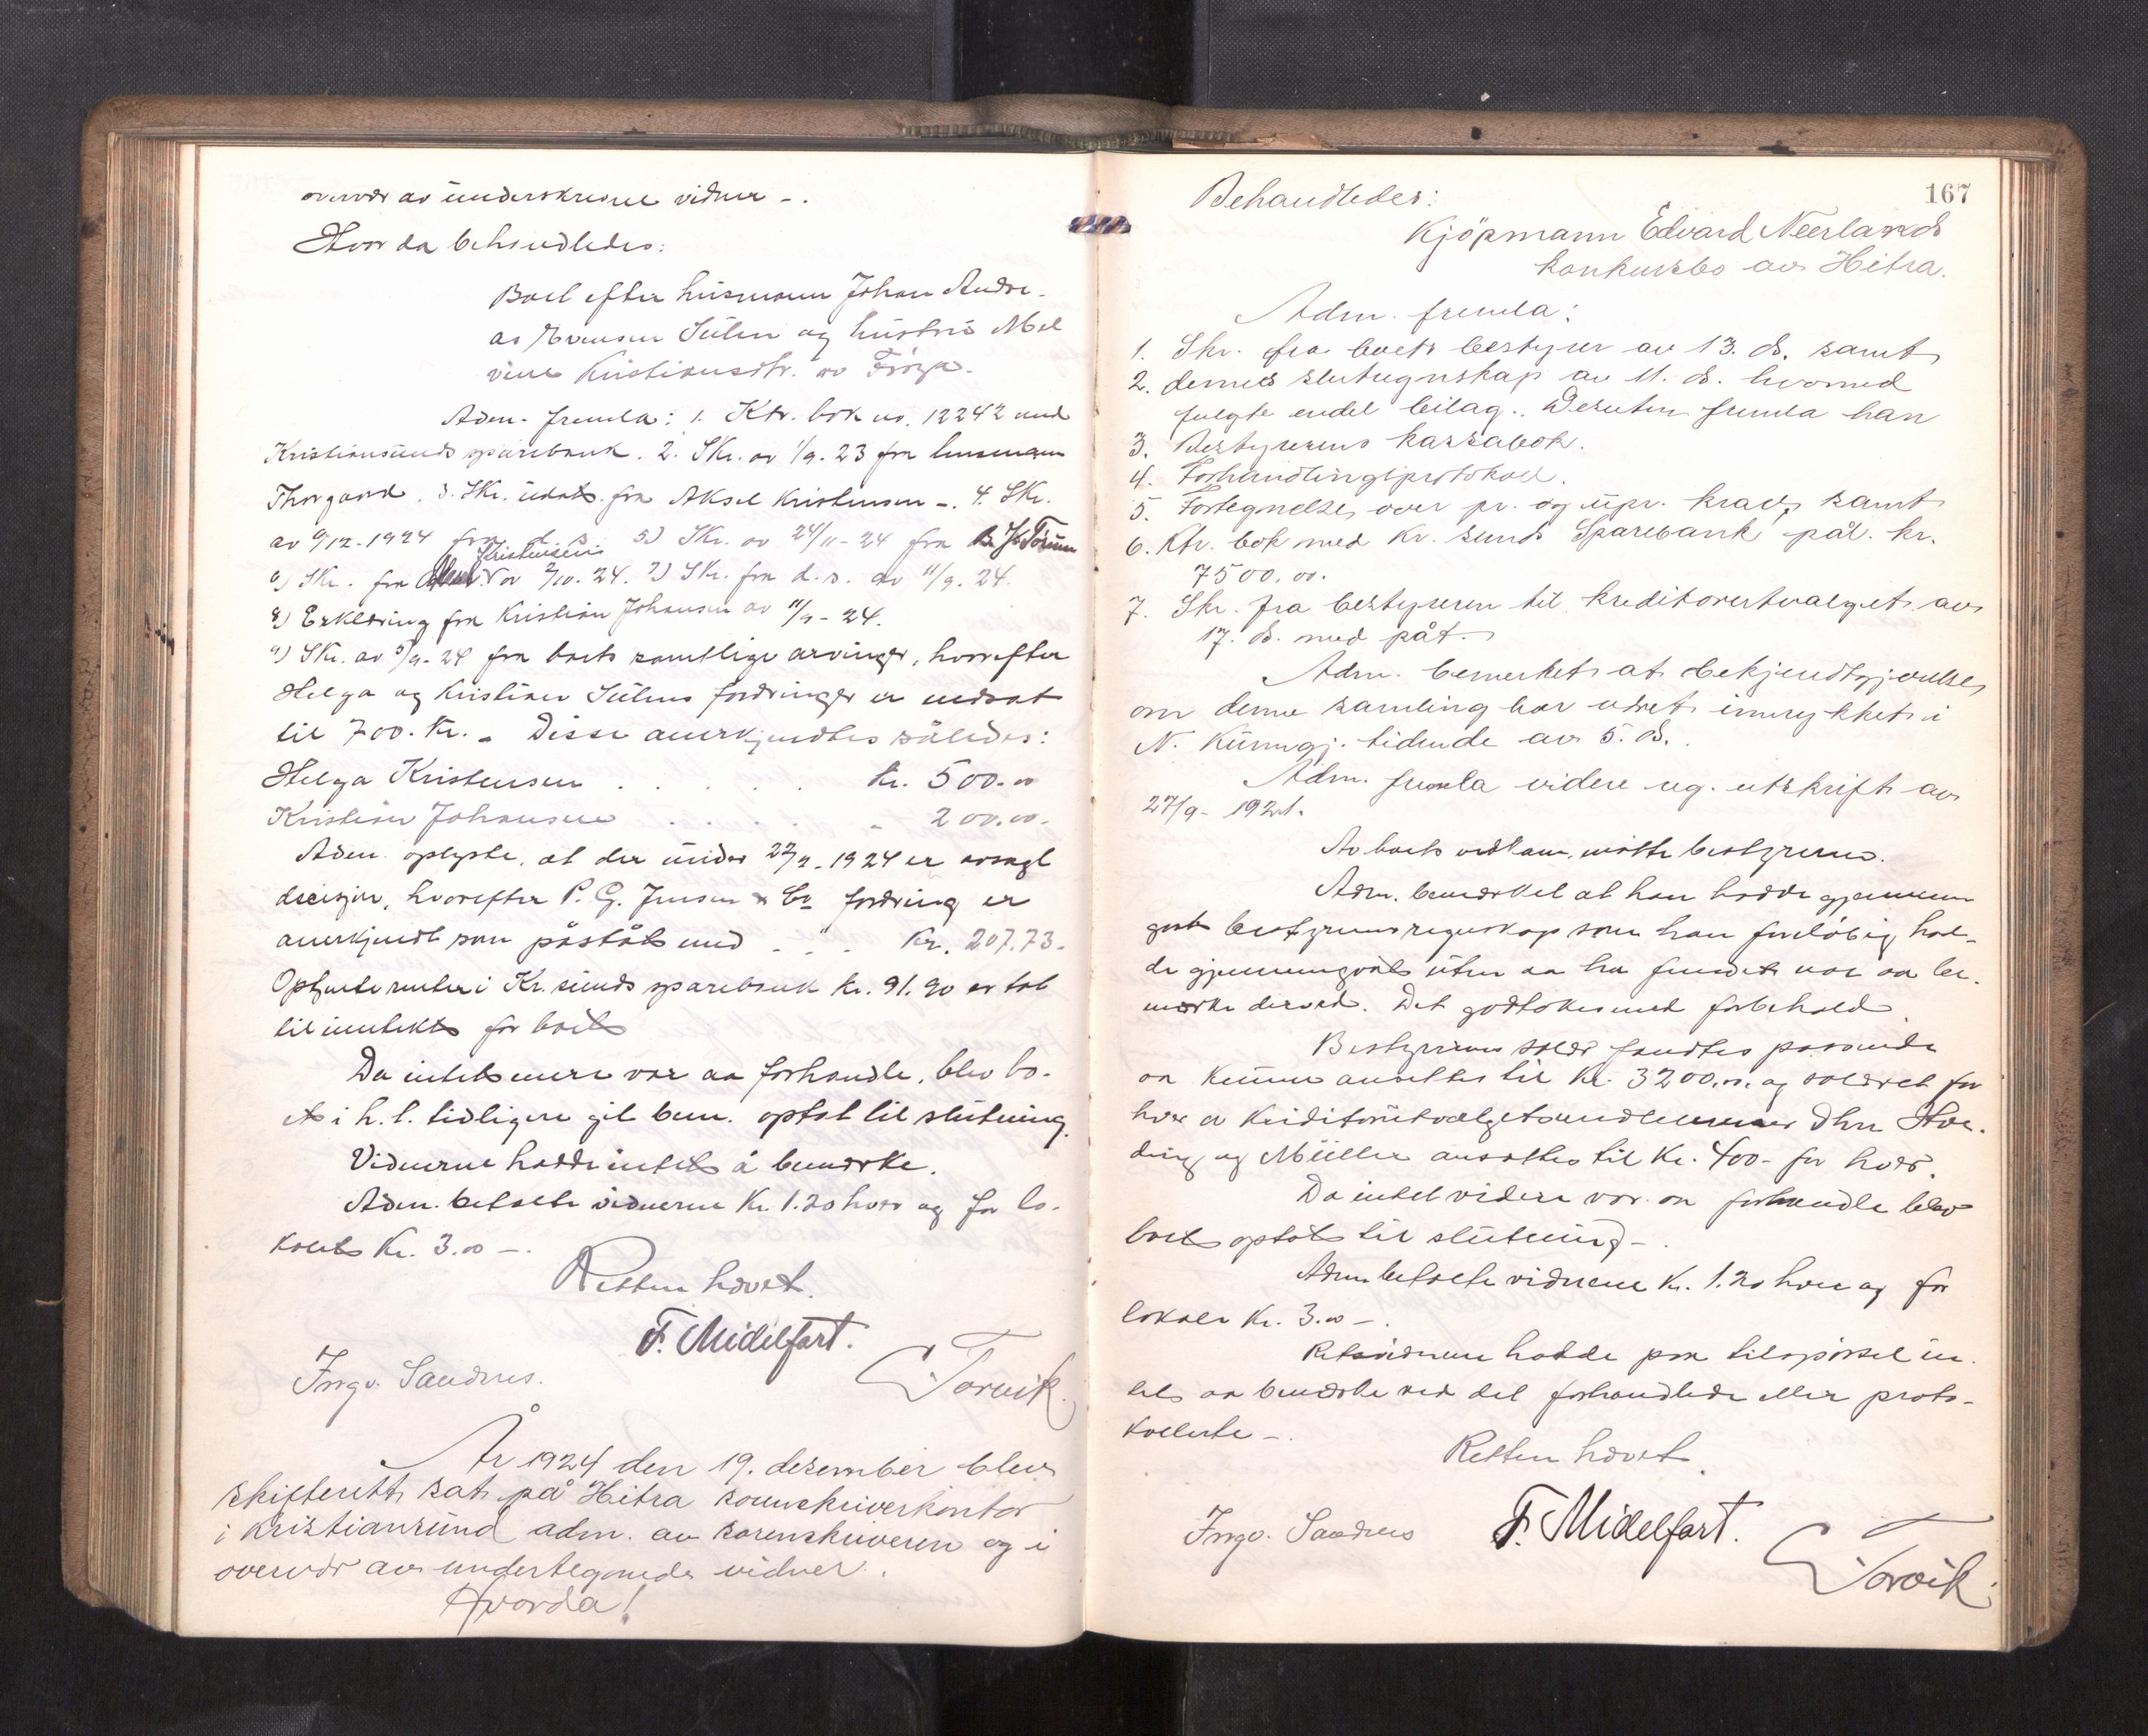 overvær av underskrevne vidner -.
Hvor da behandledes:
Boet efter husmann Johan Andre-
as Evensen Sulen og hustru Mel
vine Kristiansdtr. av Frøya.
Adm. fremla: 1. Ktr. bok no. 12242 med
Kristiansunds sparebank. 2. Skr. av 1/9. 23 fra lensmann
Thorgaard. 3. Skr. udat. fra Aksel Kristensen -. 4. Skr.
av 9/12-1924 fra d. s. 5) Skr. av 24/11-24 fra
Kristensen
6) Skr. fra av 2/10. 24. 7) Skr. fra d. s. av 11/9. 24.
8) Erklæring fra Kristian Johansen av 11/9-24.
9) Skr. av 5/9-24 fra boets samtlige arvinger, hvorefter
Helga og Kristian Sulens fordringer er nedsat
til 700. Kr. - Disse anerkjendtes således:
Helga Kristensen . . . . . Kr. 500.00
Kristian Johansen . . . . - 200.00.
Adm. oplyste, at der under 22/9-1924 er avsagt
decisjon, hvorefter P. G. Jensen & Co fordring er
anerkjendt som påståt med . " . Kr. 207.73.
Optjente renter i Kr. sunds sparebank kr. 91.90 er tat
til inntekt for boet
Da intet mere var aa forhandle, blev bo-
et i h. t. tidligere git bem. optat til slutning.
Vidnerne hadde intet å bemerke.
Adm. betalte vidnerne Kr. 1.20 hver og for lo-
kalet Kr. 3.00 -.
Retten hævet.
F. Midelfart.
Ingv. Sandnes. Torvik.
År 1924 den 19. desember blev
skifterett sat på Hitra sorenskriverkontor
i Kristiansund adm. av sorenskriveren og i
overvær av undertegnede vidner.
Hvorda!
167
Behandledes:
Kjöpmann Edvard Neerlands
konkursbo av Hitra.
Adm. fremla:
1. Skr. fra boets bestyrer av 13. ds. samt
2. dennes sluttregnskap av 11. ds. hvormed
fulgte endel bilag. Desuten fremla han
3. Bestyrerens kassabok.
4. Forhandlingsprotokoll.
5. Fortegnelse over pr. og upr. krav, samt
6. Ktr. bok med Kr. sunds Sparebank pål. kr.
7500.00.
7. Skr. fra bestyreren til kreditorutvalget av
17. ds. med påt.
Adm. bemerket at bekjendtgjørelse
om denne samling har været innrykket i
N. Kunngj. tidende av 5. ds.
Adm. fremla videre reg. utskrift av
27/9-1921.
Av boets vedkom. møtte bestyreren.
Adm. bemærket at han hadde gjennem
gåt bestyrerens regnskap som han foreløbig had-
de gjennemgåt uten aa ha fundet noe aa be-
mærke derved. Det godtokes med forbehold.
Bestyrerens salær fandtes passende
aa kunne ansettes til Kr. 3200.00. og salæret for
hver av kreditorutvalgets medlemmer Dhrr Hor-
ding og Müller ansattes til Kr. 400- for hver.
Da intet videre var aa forhandle blev
boet optat til slutning -.
Adm. betalte vidnene Kr. 1.20 hver og for
lokaler Kr. 3.00 -.
Retsvidnene hadde paa tilspørsel in-
tet aa bemærke ved det forhandlede eller proto-
kollerte -.
Retten hævet.
Ingv. Sandnes F. Midelfart. Torvik.